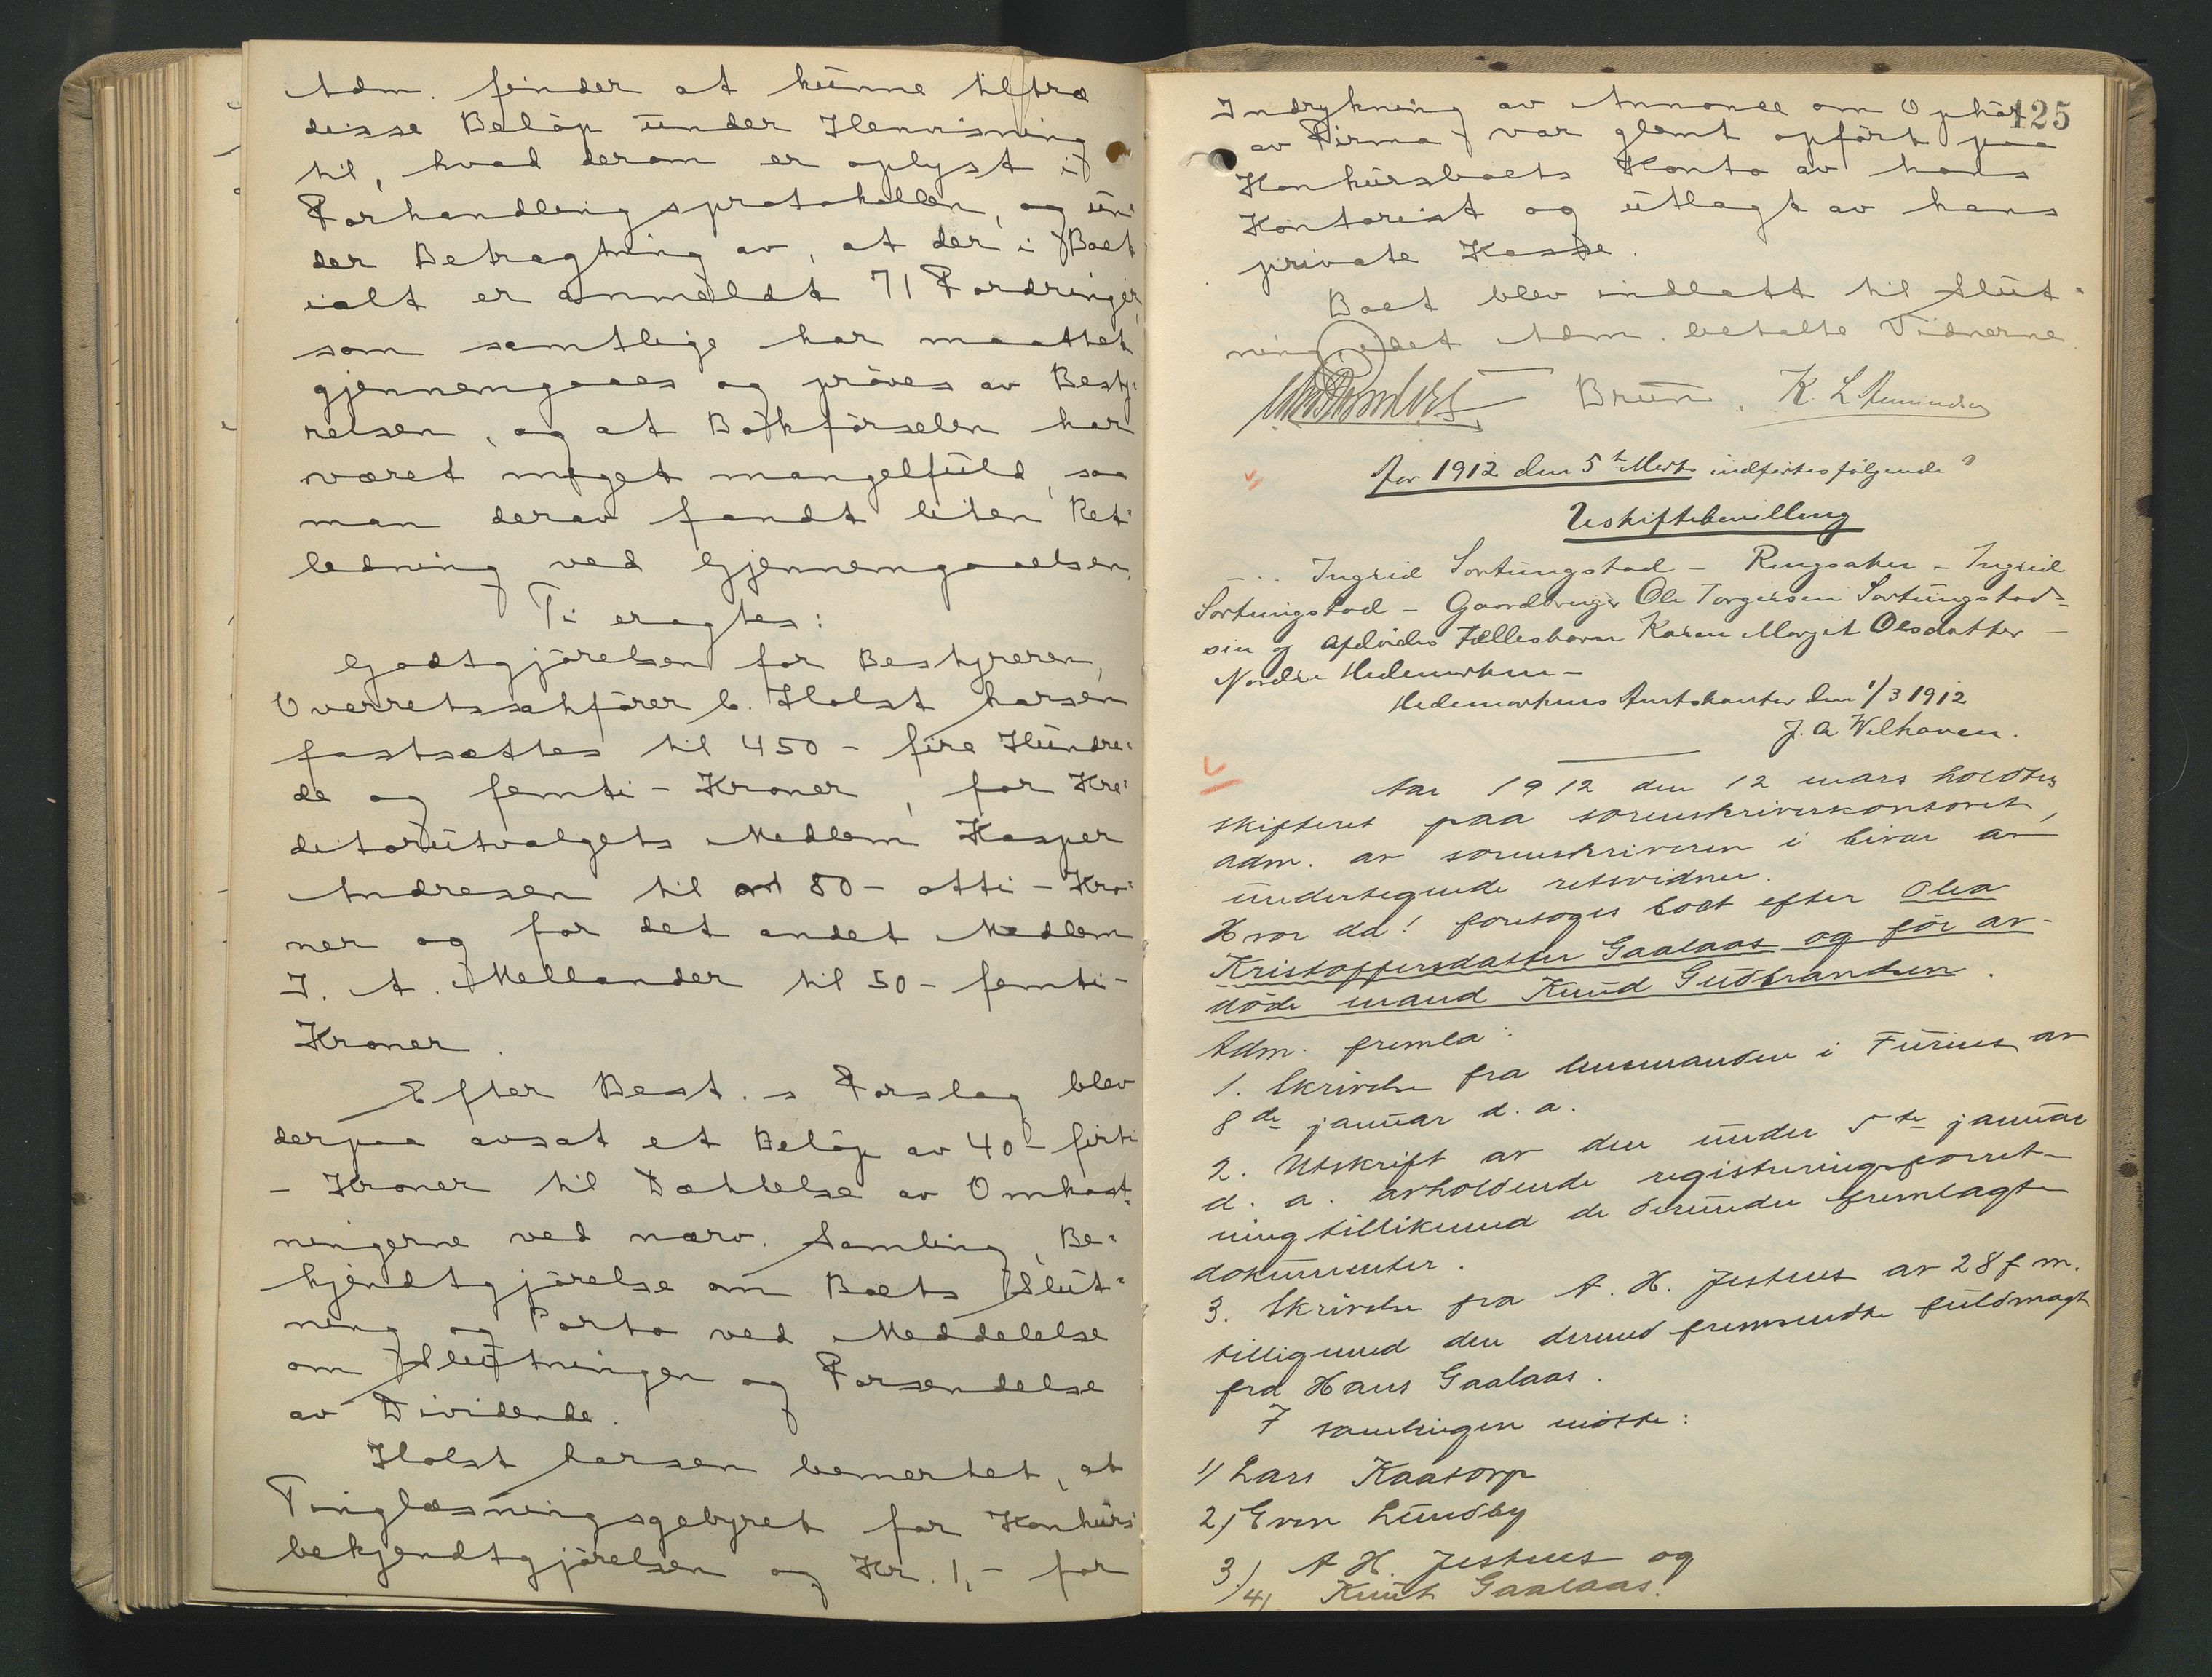 Adm. finder at kunne tiltræ
disse Beløp under Henvisning
til, hvad derom er oplyst i
Forhandlingsprotokollen, og un-
der Betragtning av, at der i Boet
ialt er anmeldt 71 Fordringer,
som samtlige har maattet
gjennemgaaes og prøves av Besty-
relsen, og at Bokførselen har
været meget mangelfuld, saa
man derav fandt liten Ret-
ledning ved Gjennemgaaelsen.
Ti eragtes:
Godtgjørelsen for Bestyreren,
Overretssakfører C. Holst Larsen
fastsættes til 450 - fire Hundre-
de og femti - Kroner, for Kre-
ditorutvalgets Medlem Kasper
Andresen til 80 - otti - Kro-
ner og for det andet Medlem
J. A. Mellander til 50 - femti -
Kroner.
Efter Best.s Forslag blev
derpaa avsat et Beløp av 40 - firti
- Kroner til Dættelse av Omkost-
ningerne ved nærv. Samling, Be-
kjendtgjørelse om Boets Slut-
ning og Porto ved Meddelelse
om Slutningen og Forsendelse
av Dividende.
Holst Larsen bemerket, at
Tinglæsningsgebyret for Konkurs-
bekjendtgjørelsen og Kr. 1,- for
125
Indrykning av Annonce om Ophør
av Firma var glemt opført paa
Konkursboets Konto av hans
Kontorist og utlagt av hans
private Kasse.
Boet blev indlatt til Slut-
ning, idet Adm. betalte Vidnerne.
Bruun. K. L. Amundsen
Aar 1912 den 5te Marts indførtes følgende
Uskiftebevilling
- .. Ingrid Sortungstad - Ringsaker - Ingrid
Sortungstad - Gaardbruger Ole Torgersen Sortungstad -
sin og Afdødes Fællesbarn Karen Margit Olsdatter -
Nordre Hedemarken -
Hedemarkens Amtskontor den 1/3 1912
J. A Welhaven.
Aar 1912 den 12 mars holdtes
skifteret paa sorenskriverkontoret,
adm. av sorenskriveren i bivær av
undertegnede retsvidner.
Hvor da! foretoges boet efter Olea
Kristoffersdatter Gaalaas og før av-
døde mand Knud Gudbrandsen.
Adm. fremla:
1. Skrivelse fra lensmanden i Furnes av
8de januar d. a.
2. Utskrift av den under 5te januar
d. a. avholdende registreringsforret-
ning tillikemed de derunder fremlagte
dokumenter.
3. Skrivelse fra A. H. Jestnes av 28 f m.
tilligemed den dermed fremsendte fuldmagt
fra Hans Gaalaas.
I samlingen møtte:
1) Lars Kaatorp
2) Even Lundby
3) A H. Jestnes og
4) Knut Gaalaas.